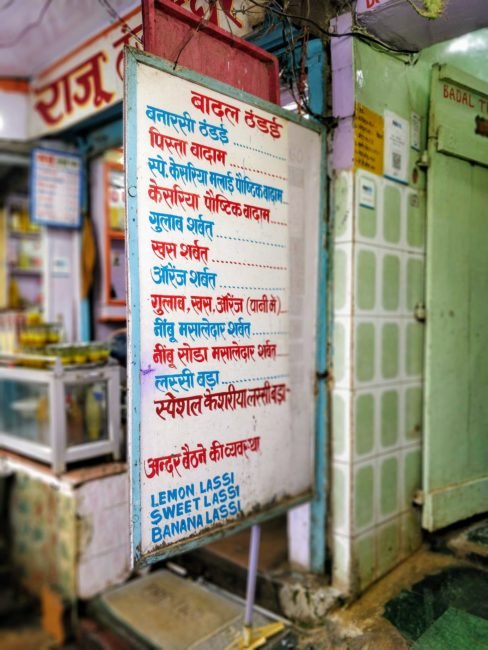 राजू
बादल ठंडई
बनारसी ठंडई
पिस्ता बादाम
स्पे. केसरिया मलाई पौष्टिक बादाम
केसरिया पौष्टिक बादाम
गुलाब शर्बत
खस शर्बत
ऑरेंज शर्बत
गुलाब, खस, ऑरेंज (पानी में)
नींबू मसालेदार शर्बत
नींबू सोडा मसालेदार शर्बत
लस्सी बड़ा
स्पेशल केशरीया लस्सी बड़ा
अन्दर बैठने की व्यवस्था
LEMON LASSI
SWEET LASSI
BANANA LASSI
BADAL